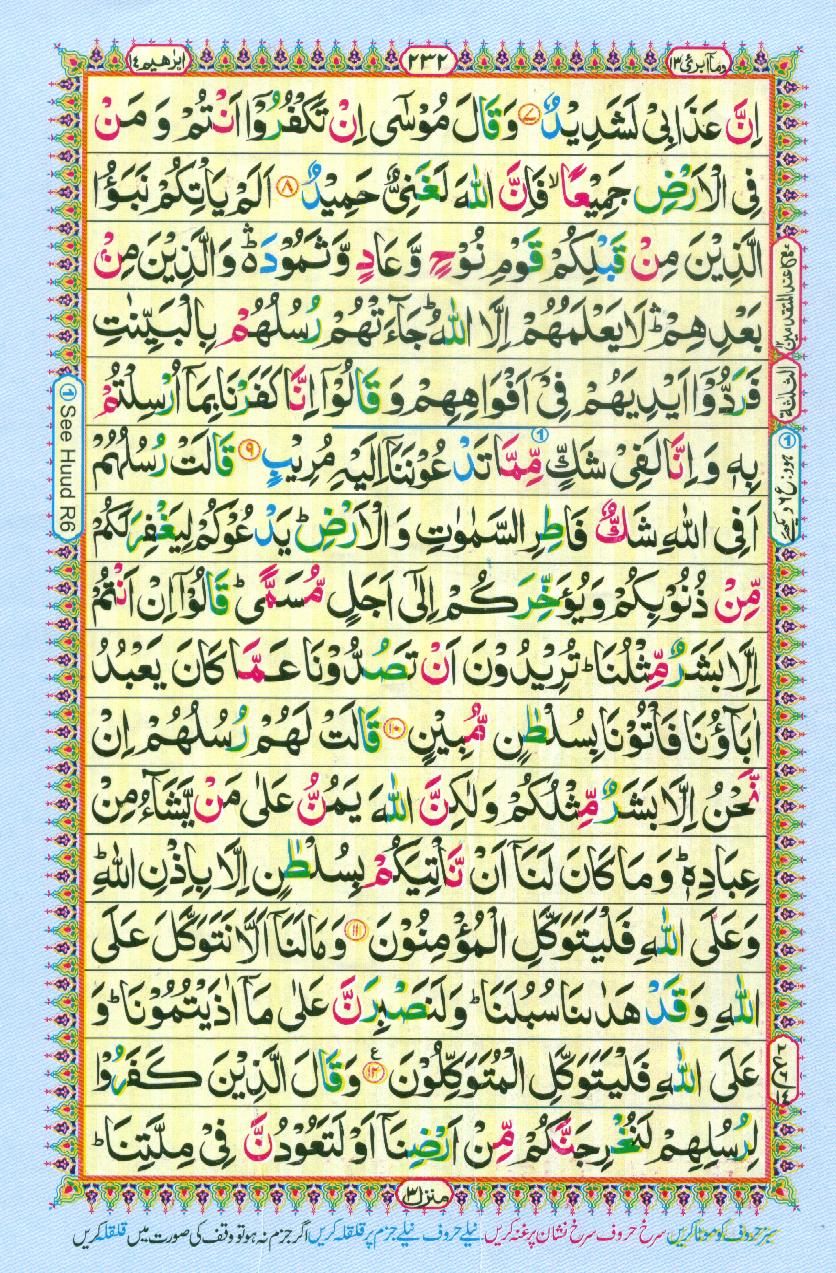 وما أبرئ ١٣
٢٣٢
ابرٰهيم ١٤
اِنَّ عَذَابِىْ لَشَدِيْدٌ ﴿٧﴾ وَقَالَ مُوْسٰٓى اِنْ تَكْفُرُوْٓا اَنْتُمْ وَ مَنْ
فِى الْاَرْضِ جَمِيْعًا ۙ فَاِنَّ اللّٰهَ لَغَنِىٌّ حَمِيْدٌ ﴿٨﴾ اَلَمْ يَاْتِكُمْ نَبَؤُا
الَّذِيْنَ مِنْ قَبْلِكُمْ قَوْمِ نُوْحٍ وَّعَادٍ وَّثَمُوْدَ ۛؕ وَالَّذِيْنَ مِنْۢ
بَعْدِهِمْ ۛؕ لَا يَعْلَمُهُمْ اِلَّا اللّٰهُ ؕ جَآءَتْهُمْ رُسُلُهُمْ بِالْبَيِّنٰتِ
فَرَدُّوْٓا اَيْدِيَهُمْ فِىْٓ اَفْوَاهِهِمْ وَ قَالُوْٓا اِنَّا كَفَرْنَا بِمَآ اُرْسِلْتُمْ
بِهٖ وَ اِنَّا لَفِىْ شَكٍّ مِّمَّا تَدْعُوْنَنَآ اِلَيْهِ مُرِيْبٍ ﴿٩﴾ قَالَتْ رُسُلُهُمْ
اَفِى اللّٰهِ شَكٌّ فَاطِرِ السَّمٰوٰتِ وَ الْاَرْضِ ؕ يَدْعُوْكُمْ لِيَغْفِرَ لَكُمْ
مِّنْ ذُنُوْبِكُمْ وَ يُؤَخِّرَكُمْ اِلٰٓى اَجَلٍ مُّسَمًّى ؕ قَالُوْٓا اِنْ اَنْتُمْ
اِلَّا بَشَرٌ مِّثْلُنَا ؕ تُرِيْدُوْنَ اَنْ تَصُدُّوْنَا عَمَّا كَانَ يَعْبُدُ
اٰبَآؤُنَا فَاْتُوْنَا بِسُلْطٰنٍ مُّبِيْنٍ ﴿١٠﴾ قَالَتْ لَهُمْ رُسُلُهُمْ اِنْ
نَّحْنُ اِلَّا بَشَرٌ مِّثْلُكُمْ وَلٰكِنَّ اللّٰهَ يَمُنُّ عَلٰى مَنْ يَّشَآءُ مِنْ
عِبَادِهٖ ؕ وَمَا كَانَ لَنَآ اَنْ نَّاْتِيَكُمْ بِسُلْطٰنٍ اِلَّا بِاِذْنِ اللّٰهِ ؕ
وَعَلَى اللّٰهِ فَلْيَتَوَكَّلِ الْمُؤْمِنُوْنَ ﴿١١﴾ وَمَا لَنَآ اَلَّا نَتَوَكَّلَ عَلَى
اللّٰهِ وَ قَدْ هَدٰىنَا سُبُلَنَا ؕ وَلَنَصْبِرَنَّ عَلٰى مَآ اٰذَيْتُمُوْنَا ؕ وَ
عَلَى اللّٰهِ فَلْيَتَوَكَّلِ الْمُتَوَكِّلُوْنَ ﴿١٢﴾ ع وَقَالَ الَّذِيْنَ كَفَرُوْا
لِرُسُلِهِمْ لَنُخْرِجَنَّكُمْ مِّنْ اَرْضِنَآ اَوْ لَتَعُوْدُنَّ فِىْ مِلَّتِنَا ؕ
مع عند المتقدمين ١٢
الثلثة
① See Huud R6
منزل ٣
سبز حروف کو موٹا کریں سرخ حروف سرخ نشان پر غنہ کریں نیلے حروف نیلے جزم پر قلقلہ کریں اگر جزم نہ ہو تو وقف کی صورت میں قلقلہ کریں